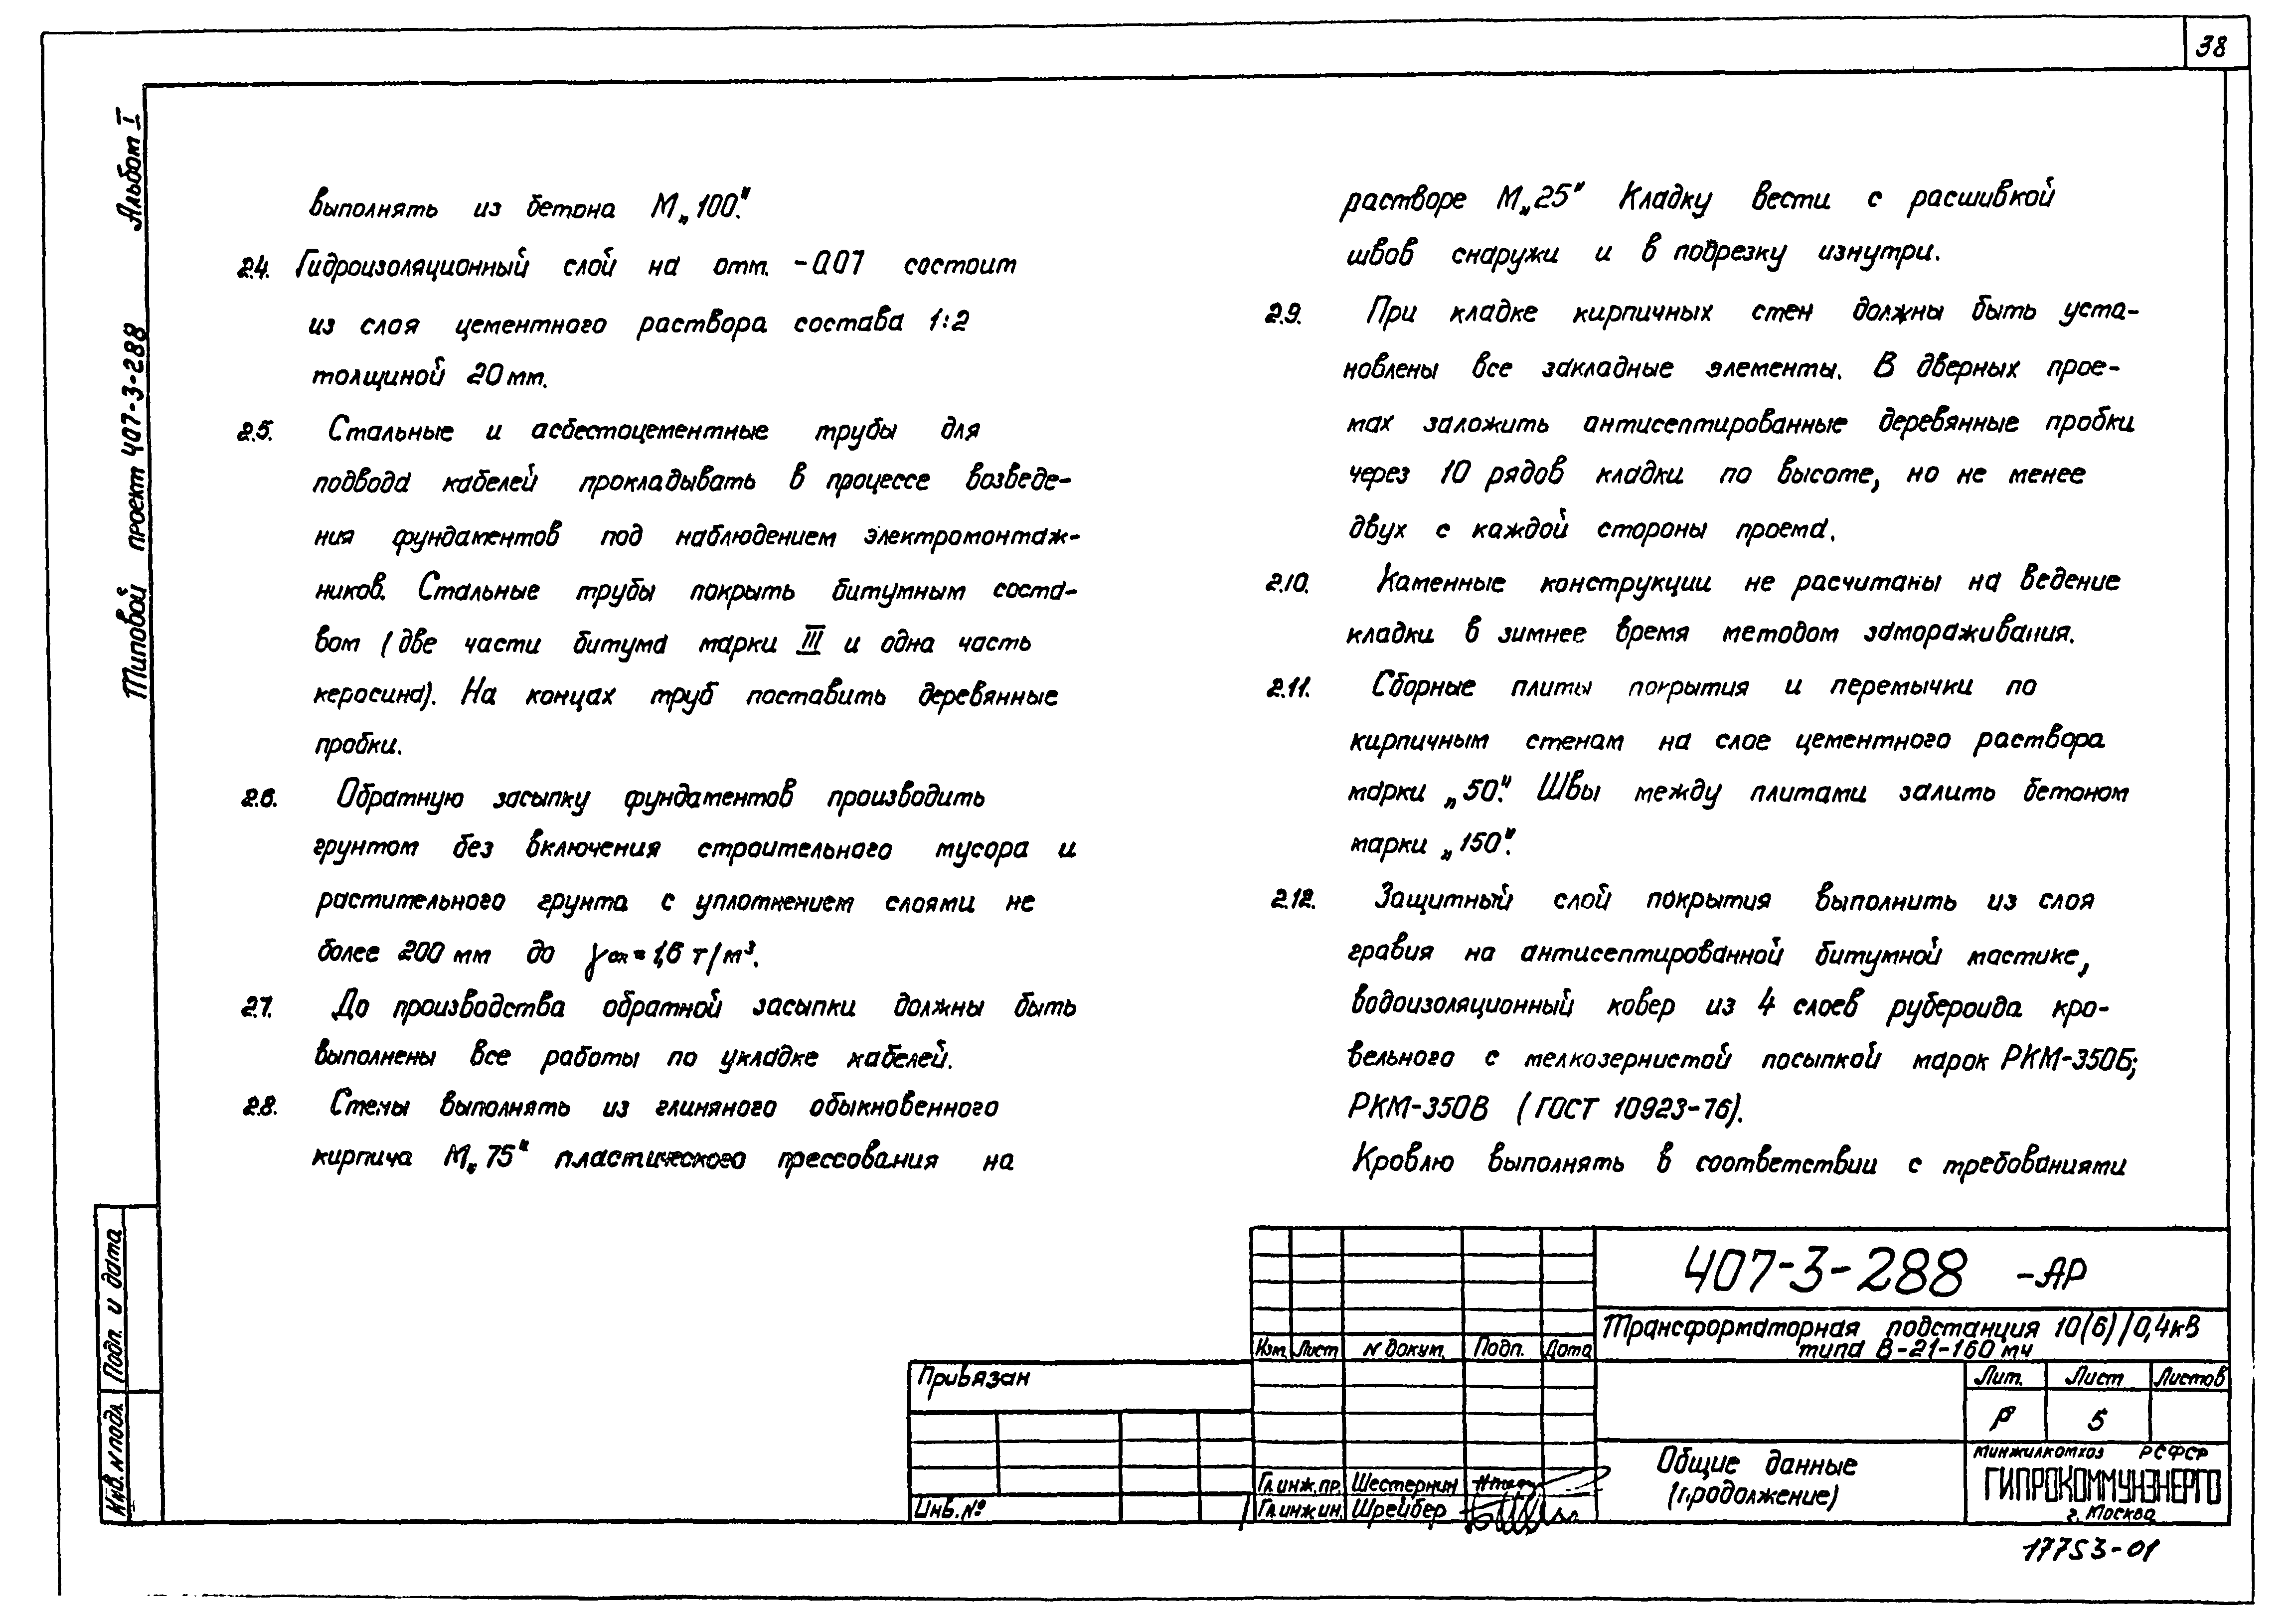 38
Альбом I
Типовой проект 407-3-288
выполнять из бетона М„100".
2.4. Гидроизоляционный слой на отм. -0.07 состоит
из слоя цементного раствора состава 1:2
толщиной 20мм.
2.5. Стальные и асбестоцементные трубы для
подвода кабелей прокладывать в процессе возведе-
ния фундаментов под наблюдением электромонтаж-
ников. Стальные трубы покрыть битумным соста-
вом (две части битума марки III и одна часть
керосина). На концах труб поставить деревянные
пробки.
2.6. Обратную засыпку фундаментов производить
грунтом без включения строительного мусора и
растительного грунта с уплотнением слоями не
более 200 мм до γск=1,6 т/м³.
2.7. До производства обратной засыпки должны быть
выполнены все работы по укладке кабелей.
2.8. Стены выполнять из глиняного обыкновенного
кирпича М„75" пластического прессования на
растворе М„25" Кладку вести с расшивкой
швов снаружи и в подрезку изнутри.
2.9. При кладке кирпичных стен должны быть уста-
новлены все закладные элементы. В дверных прое-
мах заложить антисептированные деревянные пробки
через 10 рядов кладки по высоте, но не менее
двух с каждой стороны проема.
2.10. Каменные конструкции не расчитаны на ведение
кладки в зимнее время методом замораживания.
2.11. Сборные плиты покрытия и перемычки по
кирпичным стенам на слое цементного раствора
марки „50". Швы между плитами залить бетоном
марки „150".
2.12. Защитный слой покрытия выполнить из слоя
гравия на антисептированной битумной мастике,
водоизоляционный ковер из 4 слоев рубероида кро-
вельного с мелкозернистой посыпкой марок РКМ-350Б;
РКМ-350В (ГОСТ 10923-76).
Кровлю выполнять в соответствии с требованиями
Подп. и дата
Инв. № подл.
Привязан
Инв. №
Изм. Лист № докум. Подп. Дата
Гл.инж.пр. Шестернин
Гл.инж.ин. Шрейбер
407-3-288 -АР
Трансформаторная подстанция 10(6)/0,4кВ
типа В-21-160 мч
Лит. Лист Листов
Р 5
Общие данные
(продолжение)
минжилкомхоз РСФСР
ГИПРОКОММУНЭНЕРГО
г. Москва
17753-01